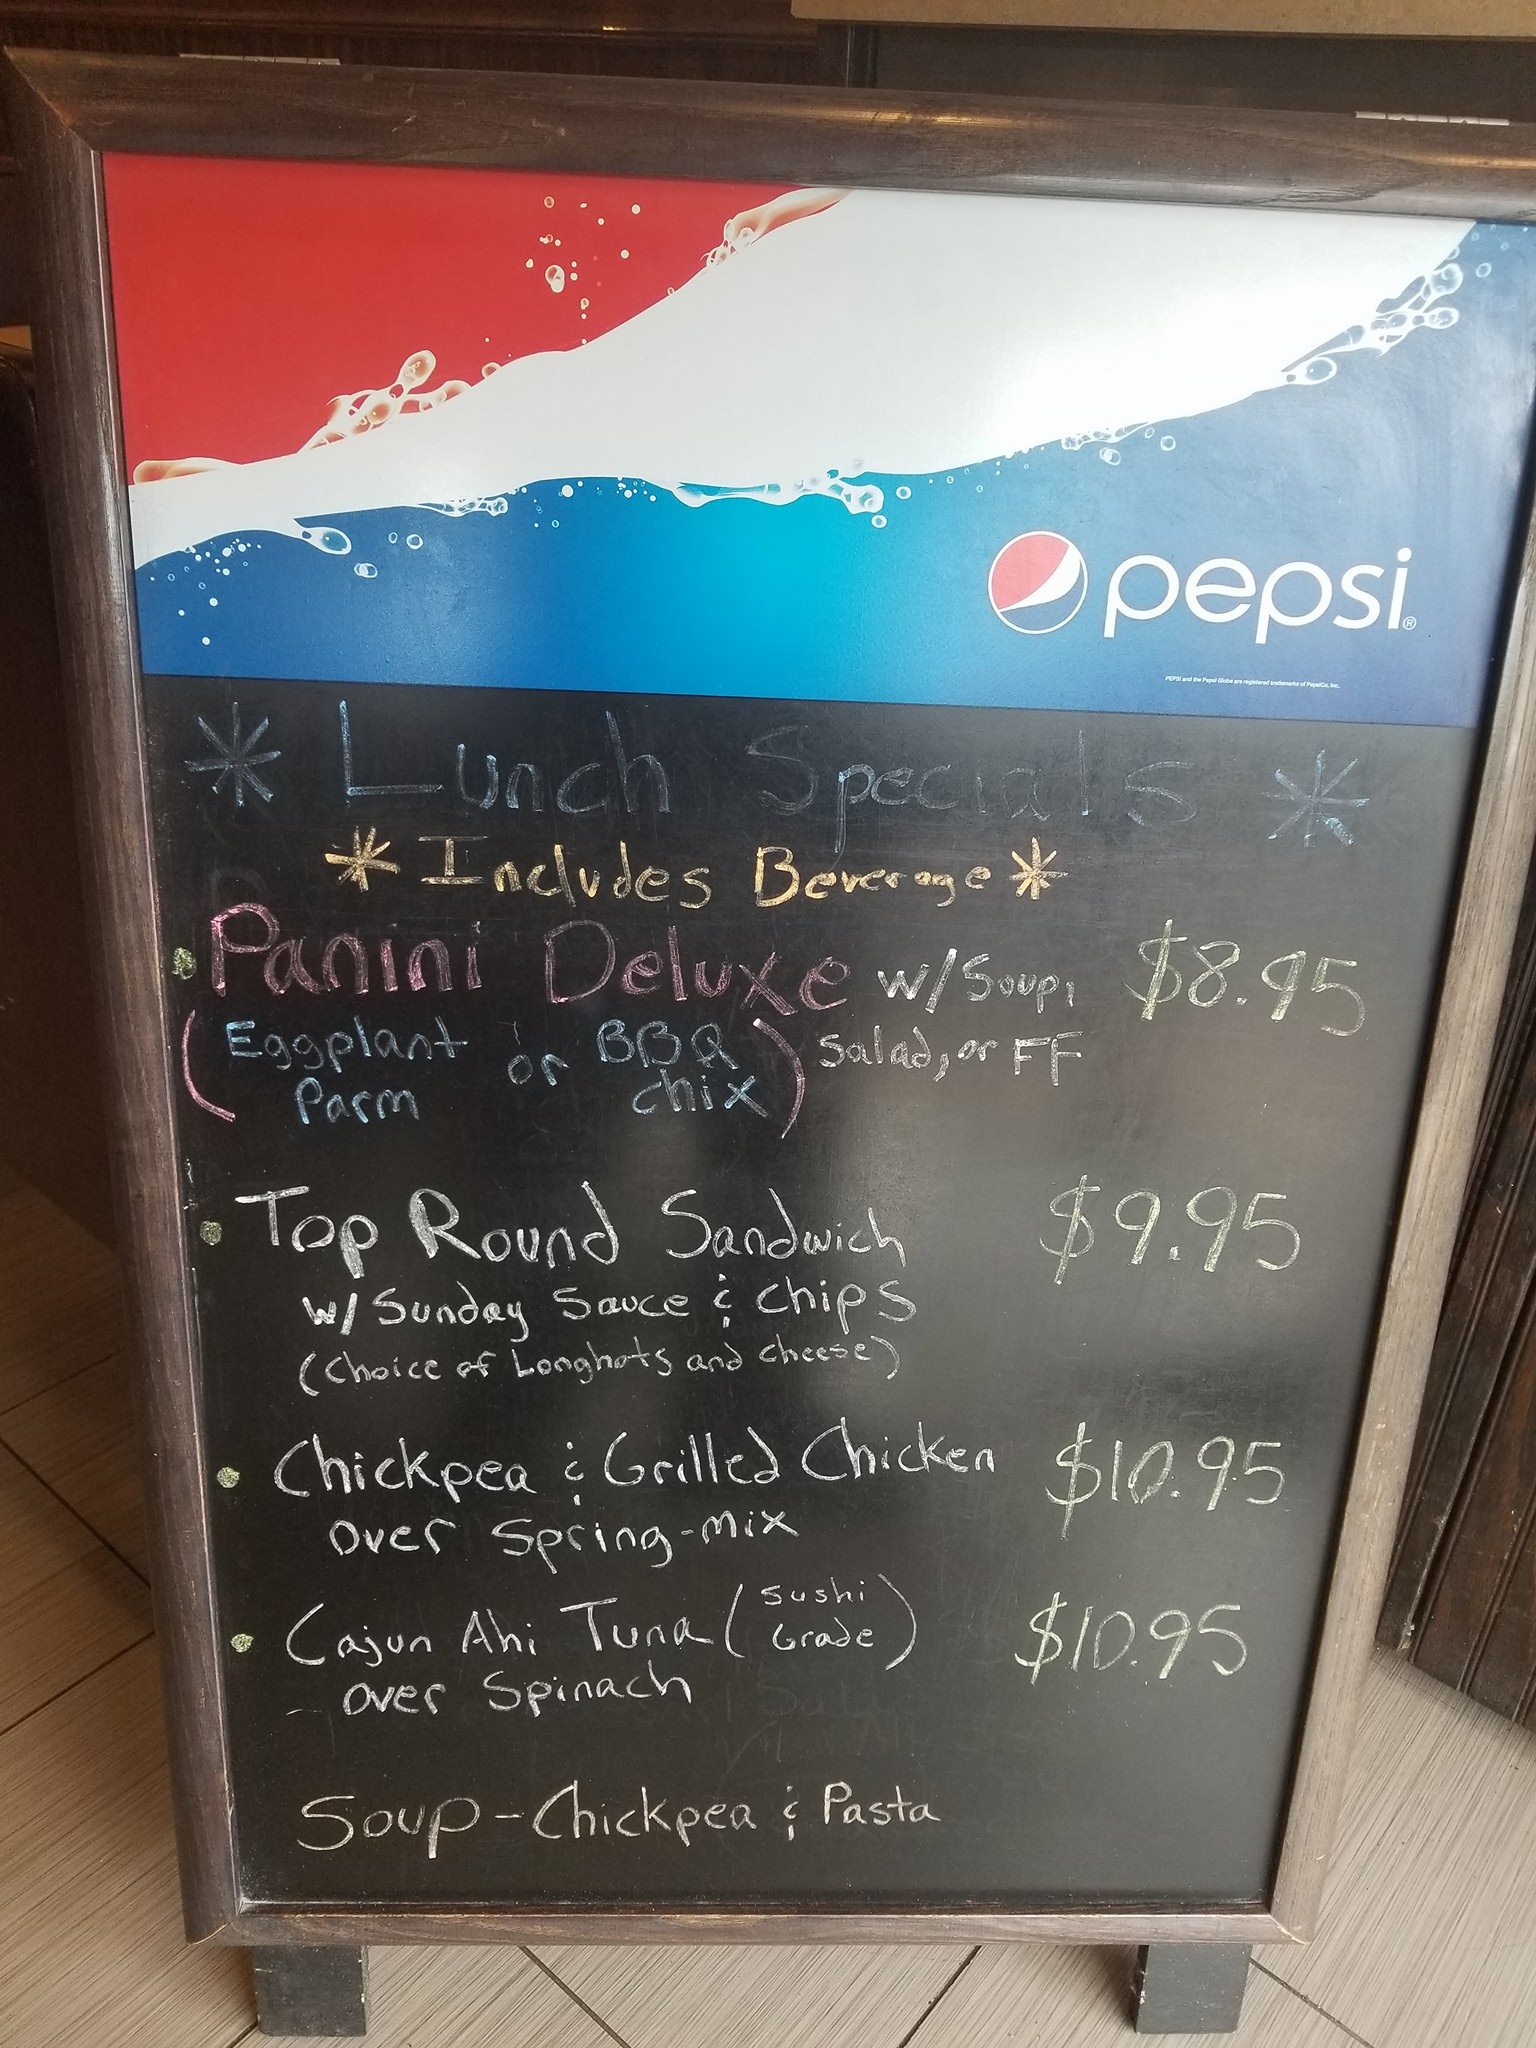 pepsi®
PEPSI and the Pepsi Globe are registered trademarks of PepsiCo, Inc.
* Lunch Specials *
* Includes Beverage *
• Panini Deluxe w/ Soup, $8.95
(Eggplant or BBQ) Salad, or FF
Parm Chix
• Top Round Sandwich $9.95
w/ Sunday Sauce & Chips
(Choice of Longhots and Cheese)
• Chickpea & Grilled Chicken $10.95
over Spring-mix
• Cajun Ahi Tuna (Sushi Grade) $10.95
over Spinach
Soup - Chickpea & Pasta